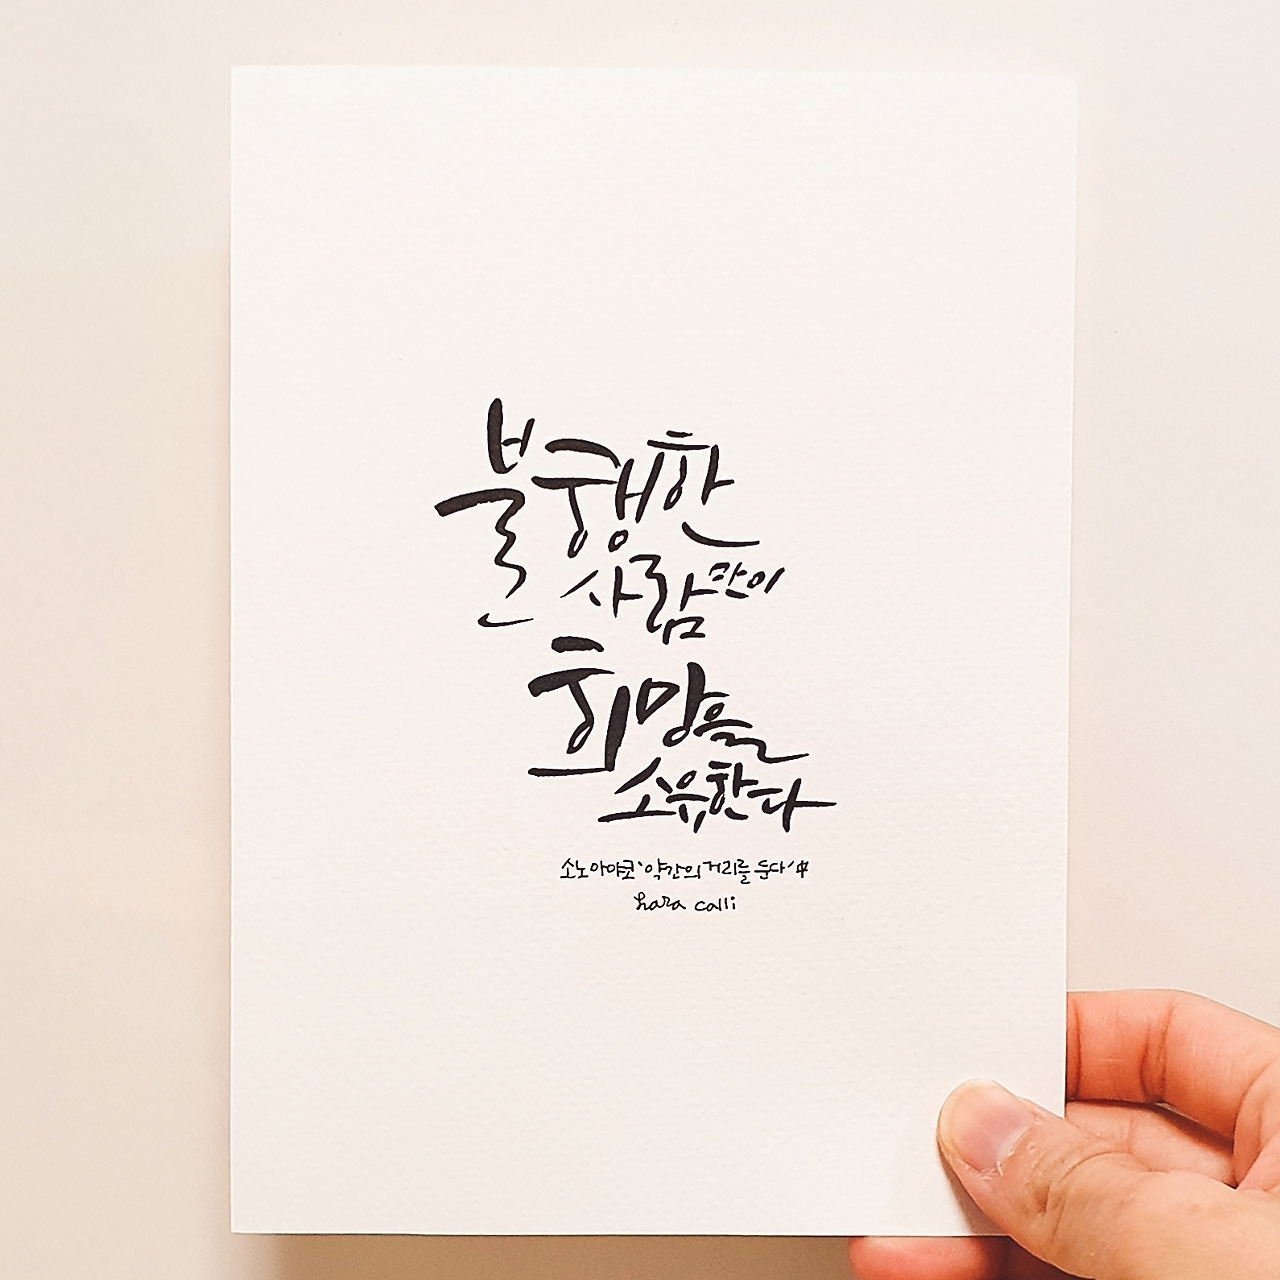 불행한
사람만이
희망을
소유한다
소노 아야코 '약간의 거리를 둔다' 中
hara calli